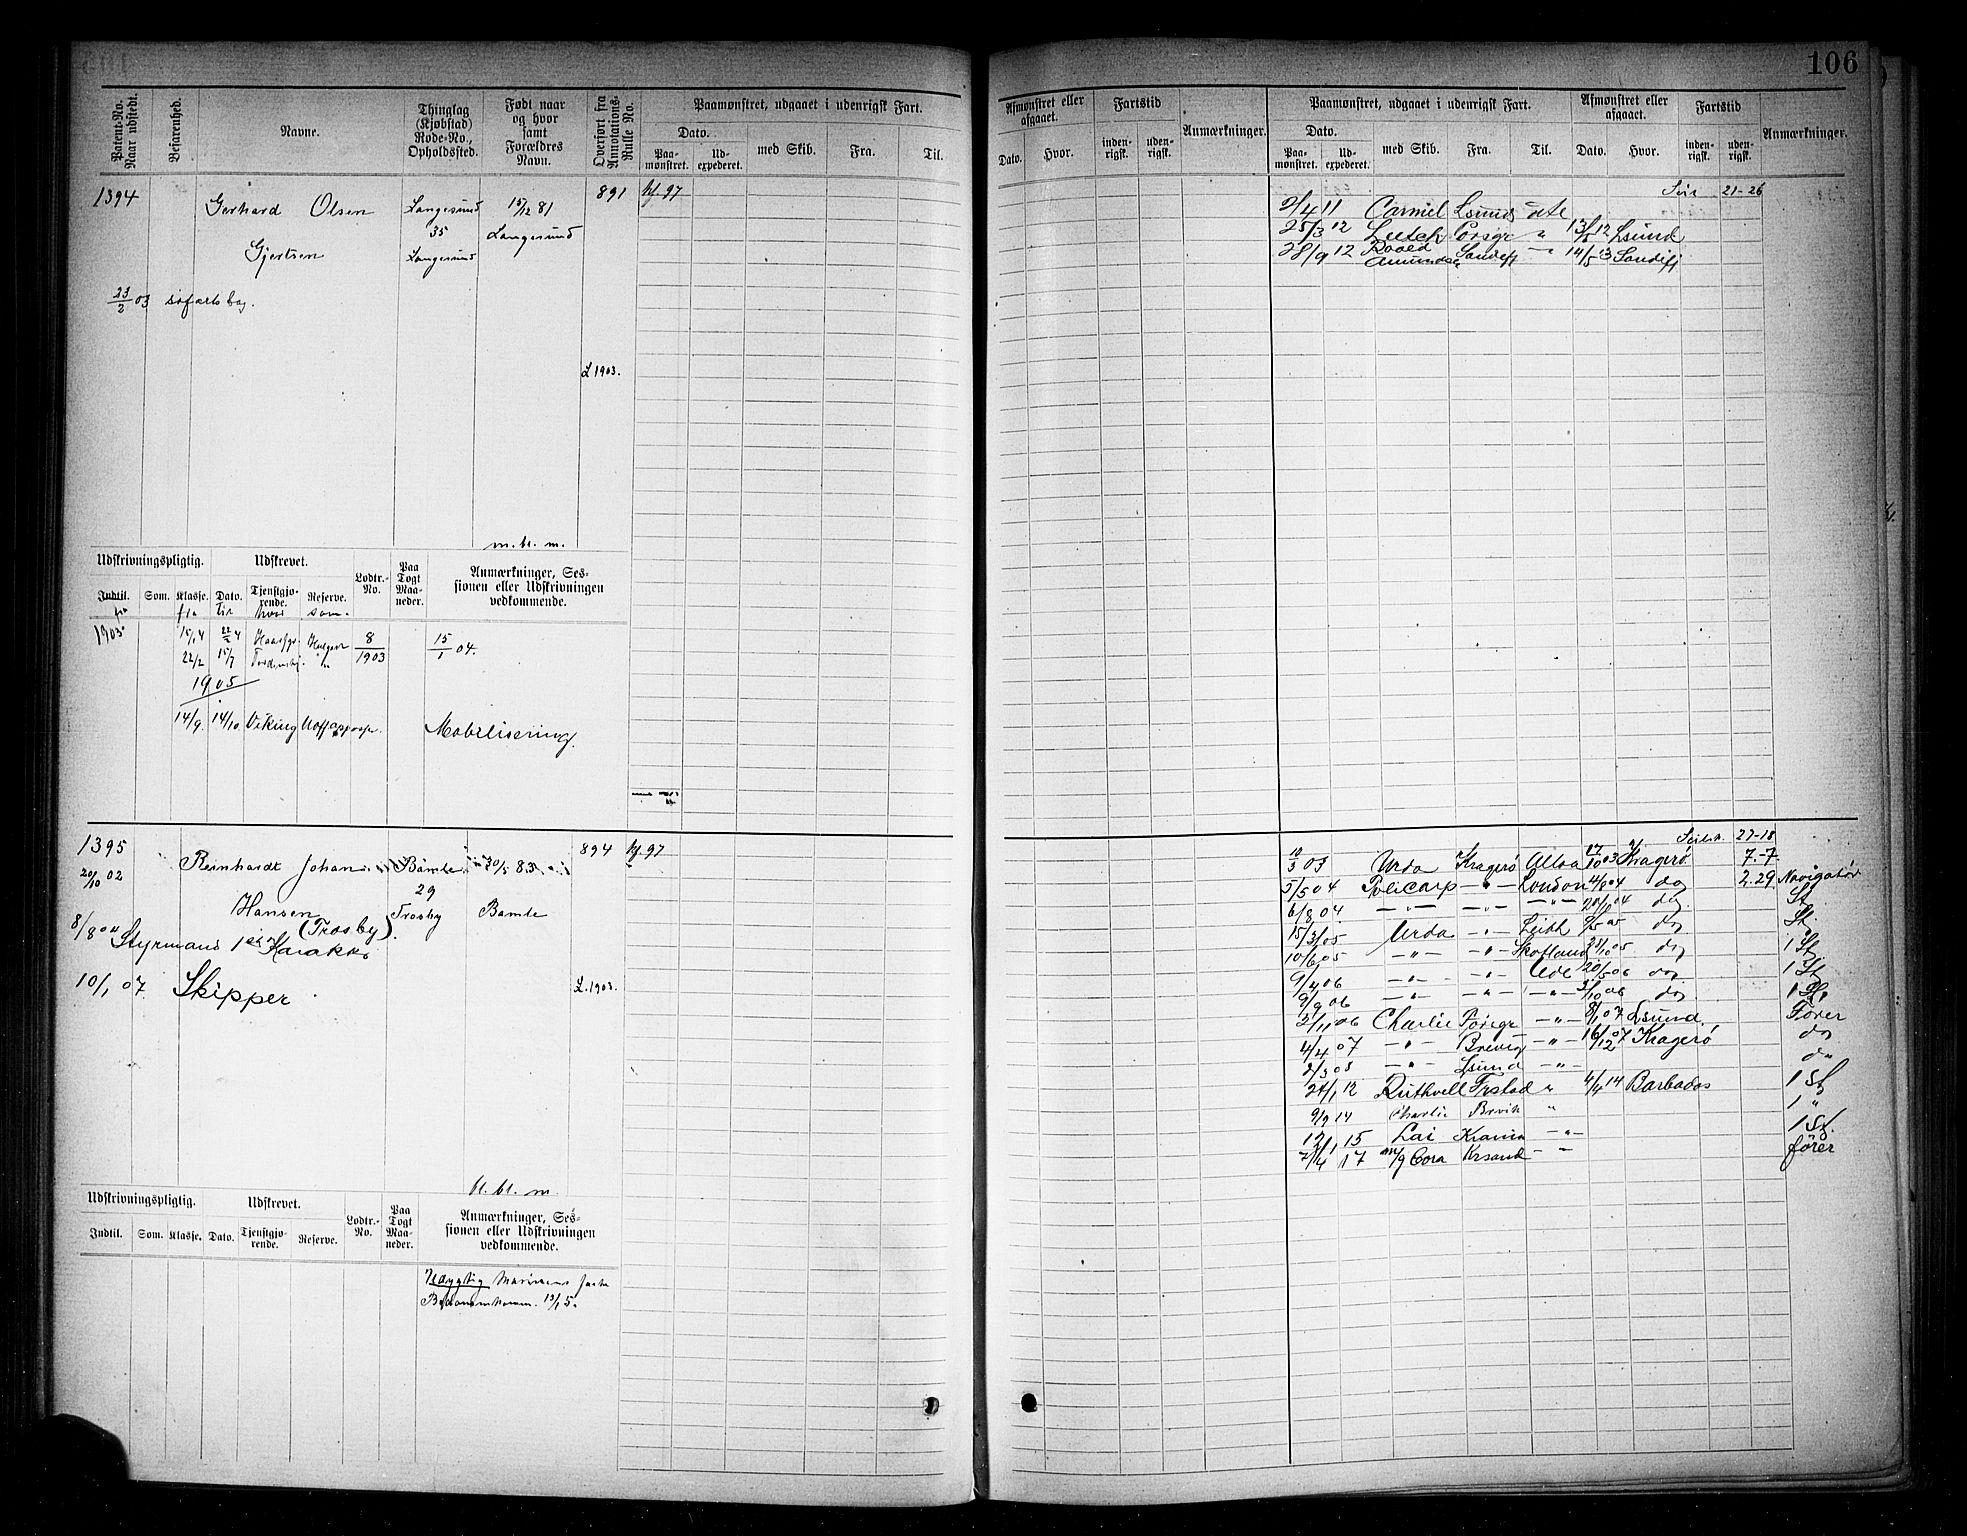 106
Patent-No. Naar udstedt.
Befarenhed.
Navne.
Thinglag (Kjøbstad) Rode-No., Opholdssted.
Født naar og hvor samt Forældres Navn.
Overført fra Annotations-Rulle No.
Paamønstret, udgaaet i udenrigsk Fart.
Dato.
Paa-mønstret.
Ud-expederet.
med Skib.
Fra.
Til.
Afmønstret eller afgaaet.
Dato.
Hvor.
Fartstid
inden-rigsk.
uden-rigsk.
Anmærkninger.
Paamønstret, udgaaet i udenrigsk Fart.
Dato.
Paa-mønstret.
Ud-expederet.
med Skib.
Fra.
Til.
Afmønstret eller afgaaet.
Dato.
Hvor.
Fartstid
inden-rigsk.
uden-rigsk.
Anmærkninger.
1394 Gerhard Olsen Langesund 15/12 81 891 97
35 Langesund
Gjertsen Langesund
23/2 03 søfartsbog.
L 1903.
21-26
2/4 11 Carmel Lsund ete
25/3 12 Porsgr " 13/8 12 Lsund
28/9 12 Roald Amundsen Sandefj - " 14/5 13 Sandefj
m. bl. m.
Udskrivningspligtig.
Udskrevet.
Lodtr.-No.
Paa Togt Maa-neder.
Anmærkninger, Ses-sionen eller Udskrivningen vedkommende.
Indtil. Som. Klasse. Dato. Tjenstgjø-rende. Reserve.
fra fra til hvor som.
1903 15/1 4 22/2 4 8/1903 15/1 04.
22/2 15/7 Tordenskj. "
1905
14/9. 14/10. Viking Mobilisering
1395 Reinhardt Johan Bamle 30/5 83 894 97
20/10 02 29
Hansen Trosby Bamle
8/8 04 (Trosby)
Styrmans 1ste Karakter
10/1 07 Skipper L. 1903.
27-18
10/3 03 Urda Kragerø Alloa 17/10 03 Kragerø 7.-7.
5/5 04 Policarp - " - London 4/8 04 do 2.29 Navigatør
6/8 04 - " - - " - - " - 20/10 04 do St
15/3 05 Urda - " - Leith 9/5 05 do St.
10/6 05 - " - - " - Skotland 21/10 05 do 1 St
9/4 06 - " - - " - Ude 20/5 06 do 1 St
9/9 06 - " - - " - - " - 2/10 06 do 1 St
2/11 06 Charlie Porsgr - " - 8/1 07 Lsund. Fører
4/4 07 - " - Brevig - " - 16/12 07 Kragerø do
2/3 08 - " - Lsund - " - do
24/1 12 Ruthvell Frstad " 4/4 14 Barbados 1 St
9/9 14 Charlie Brvik " 1 "
12/1 15 Lai Krania - " - 1 St.
2/4 17 m/g Cora Krsand - " - fører
bl. bl. m.
Udskrivningspligtig.
Udskrevet.
Lodtr.-No.
Paa Togt Maa-neder.
Anmærkninger, Ses-sionen eller Udskrivningen vedkommende.
Indtil. Som. Klasse. Dato. Tjenstgjø-rende. Reserve.
Udygtig Marinens faste
13/1 5.